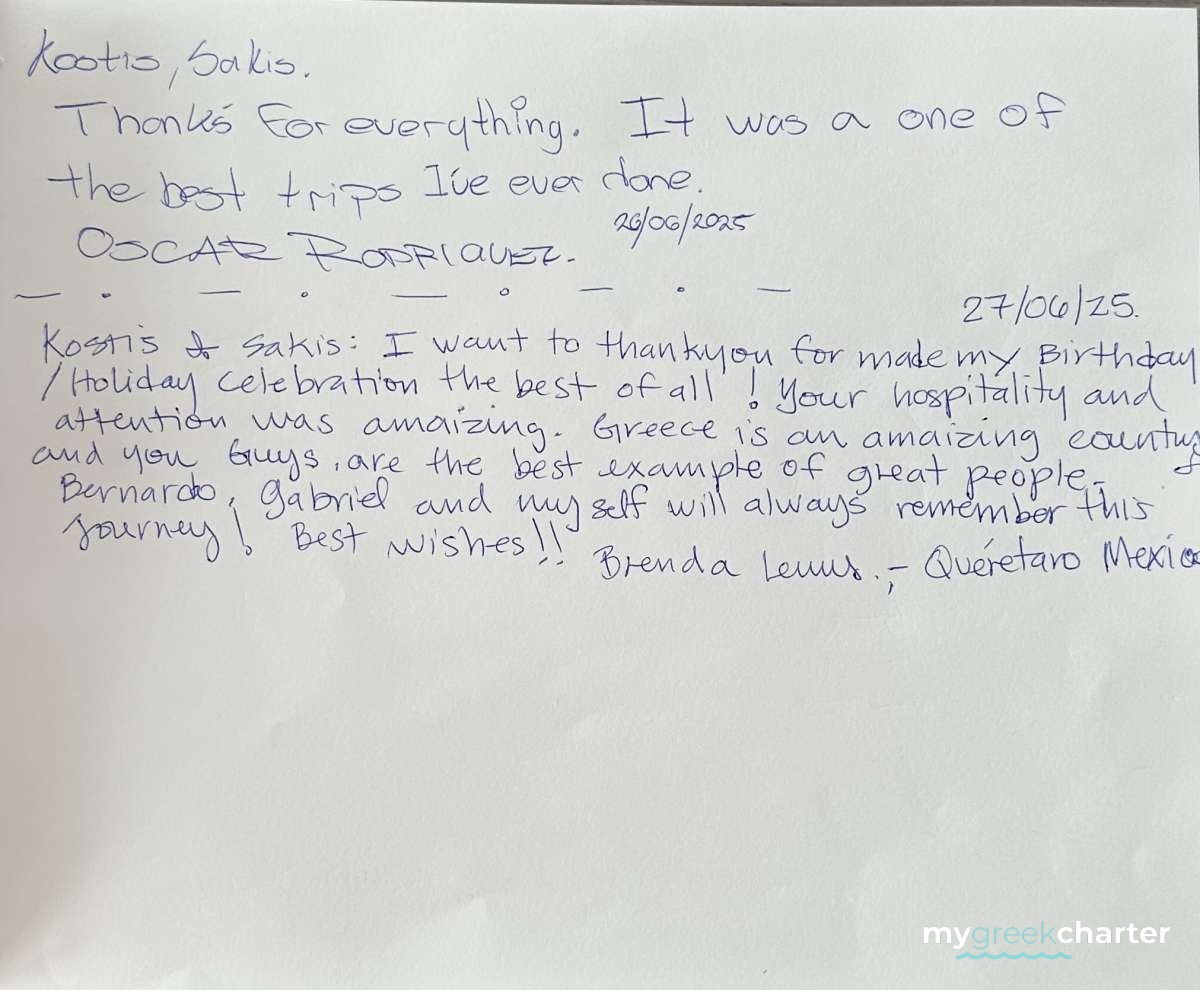 Kostis, Sakis.
Thanks For everything. It was a one of
the best trips I've ever done.
26/06/2025
OSCAR RODRIGUEZ.
27/06/25.
Kostis & Sakis: I want to thankyou for made my Birthday
/Holiday celebration the best of all! Your hospitality and
attention was amaizing. Greece is an amaizing country
and you Guys, are the best example of great people.
Bernardo, Gabriel and my self will always remember this
Journey! Best wishes!!
Brenda Lemus.- Quéretaro Mexico
mygreekcharter